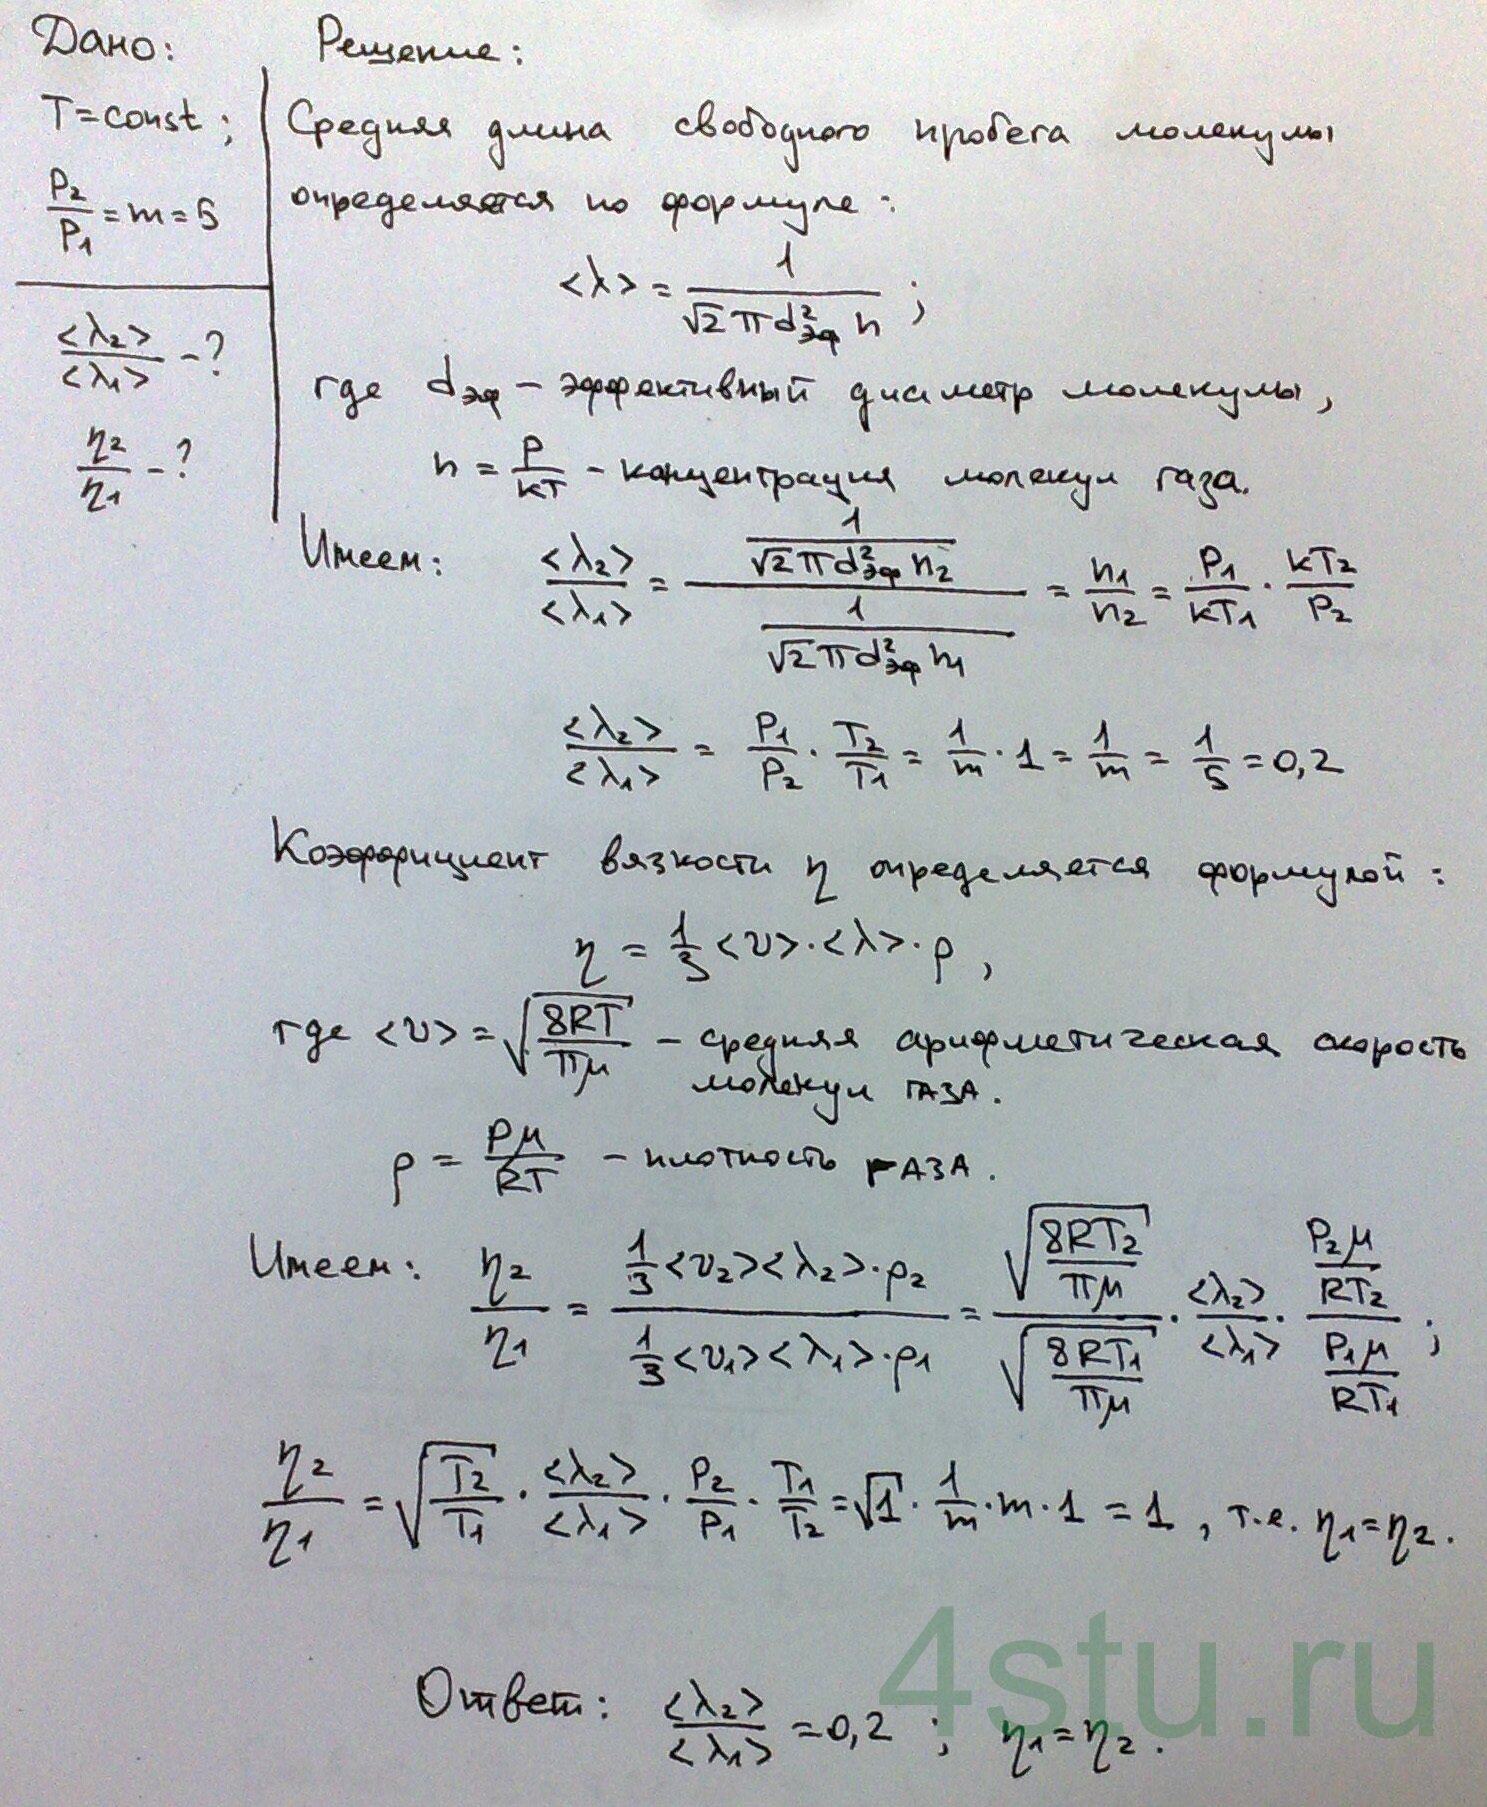 Дано:
T=const;
P₂/P₁ = m = 5
<λ₂>/<λ₁> - ?
η₂/η₁ - ?
Решение:
Средняя длина свободного пробега молекулы
определяется по формуле:
<λ> = 1/(√2 π d²эф n) ;
где dэф - эффективный диаметр молекулы,
n = P/kT - концентрация молекул газа.
Имеем: <λ₂>/<λ₁> = (1/(√2 π d²эф n₂))/(1/(√2 π d²эф n₁)) = n₁/n₂ = P₁/kT₁ · kT₂/P₂
<λ₂>/<λ₁> = P₁/P₂ · T₂/T₁ = 1/m · 1 = 1/m = 1/5 = 0,2
Коэффициент вязкости η определяется формулой:
η = 1/3 <υ>·<λ>·ρ ,
где <υ> = √(8RT/πμ) - средняя арифметическая скорость
молекул газа.
ρ = Pμ/RT - плотность газа.
Имеем: η₂/η₁ = (1/3 <υ₂><λ₂>·ρ₂)/(1/3 <υ₁><λ₁>·ρ₁) = √(8RT₂/πμ)/√(8RT₁/πμ) · <λ₂>/<λ₁> · (P₂μ/RT₂)/(P₁μ/RT₁) ;
η₂/η₁ = √(T₂/T₁) · <λ₂>/<λ₁> · P₂/P₁ · T₁/T₂ = √1 · 1/m · m · 1 = 1 , т.е. η₁=η₂.
Ответ: <λ₂>/<λ₁> = 0,2 ; η₁=η₂.
4stu.ru